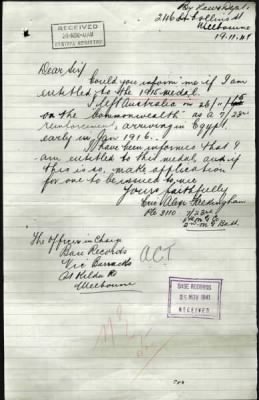 RECEIVED
CENTRAL REGISTRY
216 Collins St
Melbourne
19.11.41
Dear Sir
Could you inform me if I am
entitled to the 1915 medal.
I left Australia on 26/11/15
on the "Commonwealth" as a 7/23rd
reinforcement, arriving in Egypt
early in Jan 1916.
I have been informed that I
am entitled to this medal, and if
this is so, make application
for one to be issued to me
Yours faithfully
Alex
No 3110 7/23rd
2nd M.G. Batt.
The Officer in Charge
Base Records
Vic Barracks
St Kilda Rd
Melbourne
ACT
BASE RECORDS
25 NOV 1941
RECEIVED